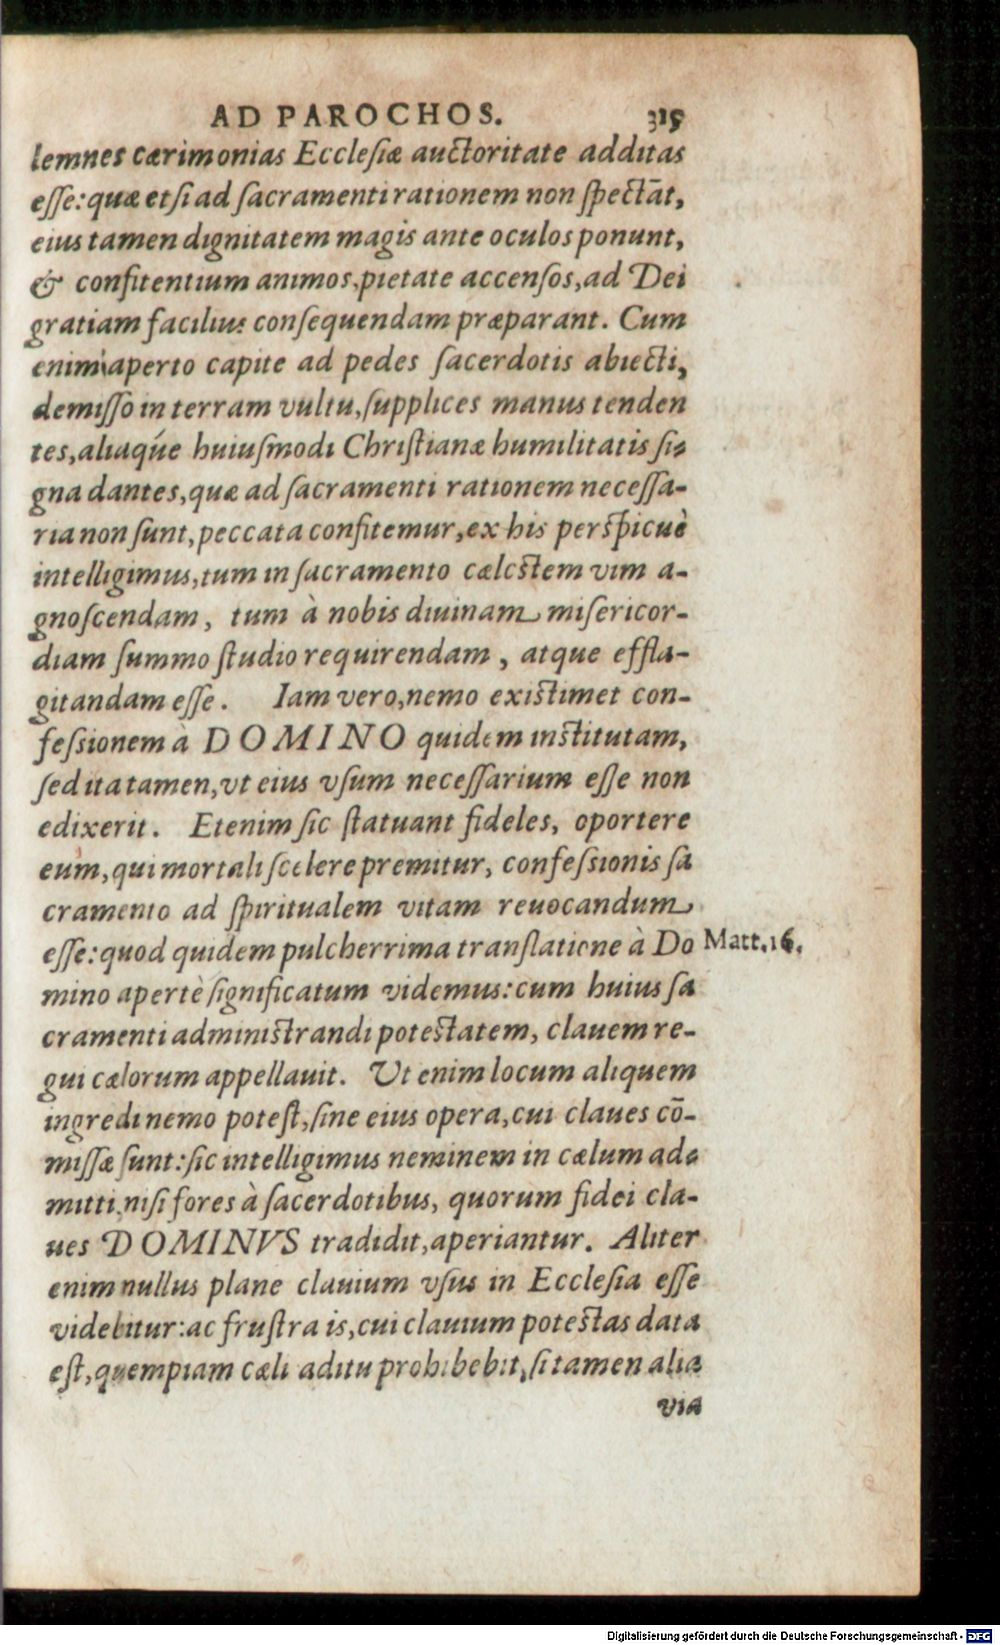 AD PAROCHOS. 315
lemnes cærimonias Ecclesiæ auctoritate additas
esse: quæ etsi ad sacramenti rationem non spectāt,
eius tamen dignitatem magis ante oculos ponunt,
& confitentium animos, pietate accensos, ad Dei
gratiam facilius consequendam præparant. Cum
enim aperto capite ad pedes sacerdotis abiecti,
demisso in terram vultu, supplices manus tenden
tes, aliaq́ue huiusmodi Christianæ humilitatis si-
gna dantes, quæ ad sacramenti rationem necessa-
ria non sunt, peccata confitemur, ex his perspicuè
intelligimus, tum in sacramento cælestem vim a-
gnoscendam, tum à nobis diuinam misericor-
diam summo studio requirendam, atque effla-
gitandam esse. Iam vero, nemo existimet con-
fessionem à DOMINO quidem institutam,
sed ita tamen, vt eius vsum necessarium esse non
edixerit. Etenim sic statuant fideles, oportere
eum, qui mortali scelere premitur, confessionis sa
cramento ad spiritualem vitam reuocandum
esse: quod quidem pulcherrima translatione à Do
Matt. 16.
mino apertè significatum videmus: cum huius sa
cramenti administrandi potestatem, clauem re-
gui cælorum appellauit. Ut enim locum aliquem
ingredi nemo potest, sine eius opera, cui claues cō-
missæ sunt: sic intelligimus neminem in cælum ad-
mitti, nisi fores à sacerdotibus, quorum fidei cla-
ues DOMINVS tradidit, aperiantur. Aliter
enim nullus plane clauium vsus in Ecclesia esse
videbitur: ac frustra is, cui clauium potestas data
est, quempiam cæli aditu prohibebit, si tamen alia
via
Digitalisierung gefördert durch die Deutsche Forschungsgemeinschaft - DFG